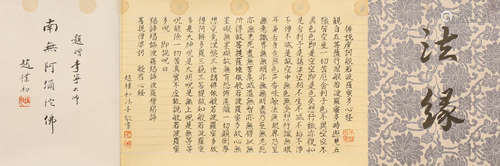 法緣
佛說摩訶般若波羅蜜多心經
觀自在菩薩行深般若波羅蜜多時照見五
蘊皆空度一切苦厄舍利子色不異空空不
異色色即是空空即是色受想行識亦復如
是舍利子是諸法空相不生不滅不垢不淨
不增不減是故空中無色無受想行識無眼
耳鼻舌身意無色聲香味觸法無眼界乃至
無意識界無無明亦無無明盡乃至無老死
亦無老死盡無苦集滅道無智亦無得以無
所得故菩提薩埵依般若波羅蜜多故心無
罣礙無罣礙故無有恐怖遠離顛倒夢
想究竟涅槃三世諸佛依般若波羅蜜多故
得阿耨多羅三藐三菩提故知般若波羅蜜
多是大神咒是大明咒是無上咒是無等等
咒能除一切苦真實不虛故說般若波羅蜜
多咒即說咒曰
揭諦揭諦波羅揭諦波羅僧揭諦
菩提薩婆訶 般若波羅蜜多心經
趙樸初沐手敬書
大師
南無阿彌陀佛
趙樸初